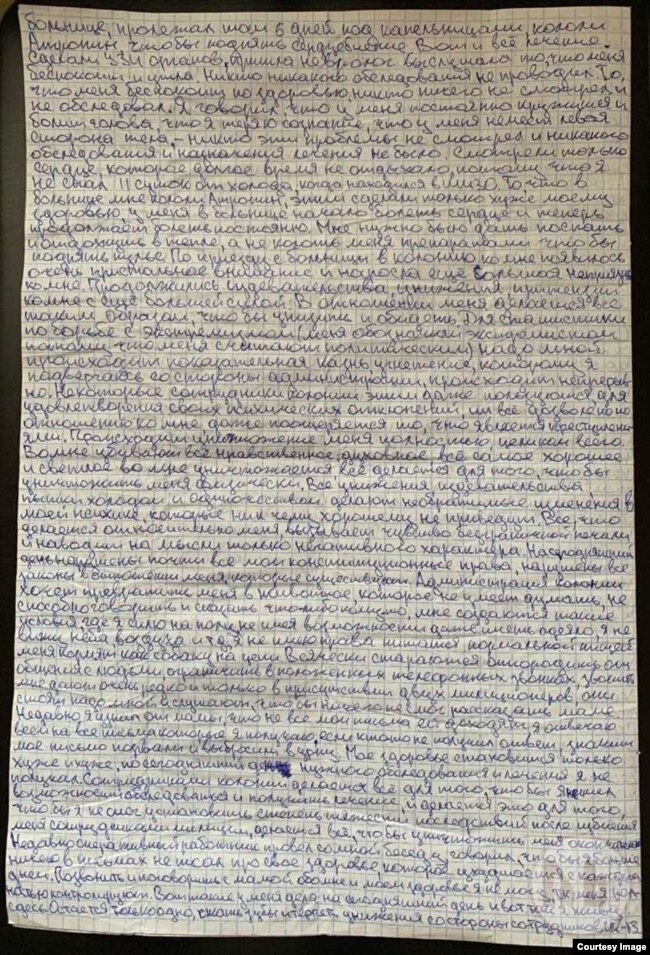 больнице, пролежал там 6 дней под капельницами, кололи
Атропин, чтобы поднять сердцебиение. Вот и всё лечение.
Сделали УЗИ органов, пришла невролог выслушала то, что меня
беспокоит и ушла. Никто никакого обследования не проводил. То,
что меня беспокоит по здоровью никто ничего не смотрел и
не обследовал. Я говорил, что у меня постоянно кружится и
болит голова, что я теряю сознание, что у меня немеет левая
сторона тела, - никто эти проблемы не смотрел и никакого
обследования и назначения лечения не было. Смотрели только
сердце, которое долгое время не отдыхало, потому что я
не спал 11 суток от холода, когда находился в ШИЗО. То что в
больнице мне кололи Атропин, этим сделали только хуже моему
здоровью, у меня в больнице начало болеть сердце и теперь
продолжает болеть постоянно. Мне нужно было дать поспать
и отдохнуть в тепле, а не колоть меня препаратами чтобы
поднять пульс. По приезду с больницы в колонию ко мне появилось
очень пристальное внимание и наросла ещё большая неприязнь
ко мне. Продолжились издевательства, унижения, претензии
ко мне с ещё большей силой. В отношении меня делается всё
таким образом, чтобы унизить и обидеть. Для статистики
по борьбе с экстремизмом (меня обозначили экстремистом
потому что меня считают политическим) надо мной
происходит показательная казнь, угнетение, которому я
подвергаюсь со стороны администрации, происходит непрерыв-
но. Некоторые сотрудники колонии этим даже пользуются для
удовлетворения своих психических отклонений, им всё дозволено по
отношению ко мне даже поощряется то, что является преступлени-
ями. Происходит уничтожение меня полностью, целиком всего.
Во мне убивают всё нравственное, духовное, всё самое хорошее
и светлое во мне уничтожается всё делается для того, чтобы
уничтожить меня физически. Все унижения, издевательства,
пытки холодом и одиночеством делают необратимые изменения в
моей психике, которые ни к чему хорошему не приведут. Всё, что
делается относительно меня, вызывает чувство безграничной печали
и наводит на мысли только негативного характера. На сегодняшний
день нарушены почти все мои конституционные права, нарушены все
законы в отношении меня, которые существуют. Администрация колонии
хочет превратить меня в животное, которое не умеет думать, не
способно говорить и сказать что либо кому то, мне создаются такие
условия где я сплю на полу не имея возможности даже иметь одеяло, я не
вижу неба воздуха и т.д, я не имею права питаться нормальной пищей
меня кормят как собаку на цепи. Всячески стараются отгородить от
общения с людьми, ограничить в положенных телефонных звонках, звонить
мне дают очень редко и только в присутствии двух милиционеров, они
стоят надо мной и слушают, чтобы ничего не смог рассказать маме.
Недавно я узнал от мамы, что не все мои письма ей доходят. Я отвечаю
всем на все письма которые я получаю, если кто то не получил ответ, значит
мое письмо порвали и выбросили в урну. Моё здоровье становится только
хуже и хуже, по сегодняшний день нужного обследования и лечения я не
получил. Сотрудниками колонии делается всё для того, чтобы я не имел
возможности обследоваться и получить лечение, и делается это для того,
чтобы я не смог установить степень тяжести последствий после избиения
меня сотрудниками милиции, делается всё, чтобы уничтожить меня окончательно
Недавно оперативный работник провёл со мной беседу, говорил, чтобы я больше
никого в письмах не писал про своё здоровье которое ухудшается с каждым
днём. Позвонить и поговорить с мамой о больнице и моем здоровье я не могу, тк меня пол-
ностью контролируют. Вот такие у меня дела на сегодняшний день и вот так я живу
здесь. Остаётся только одно, сжать зубы и терпеть унижения со стороны сотрудников ИК-13.
Courtesy Image